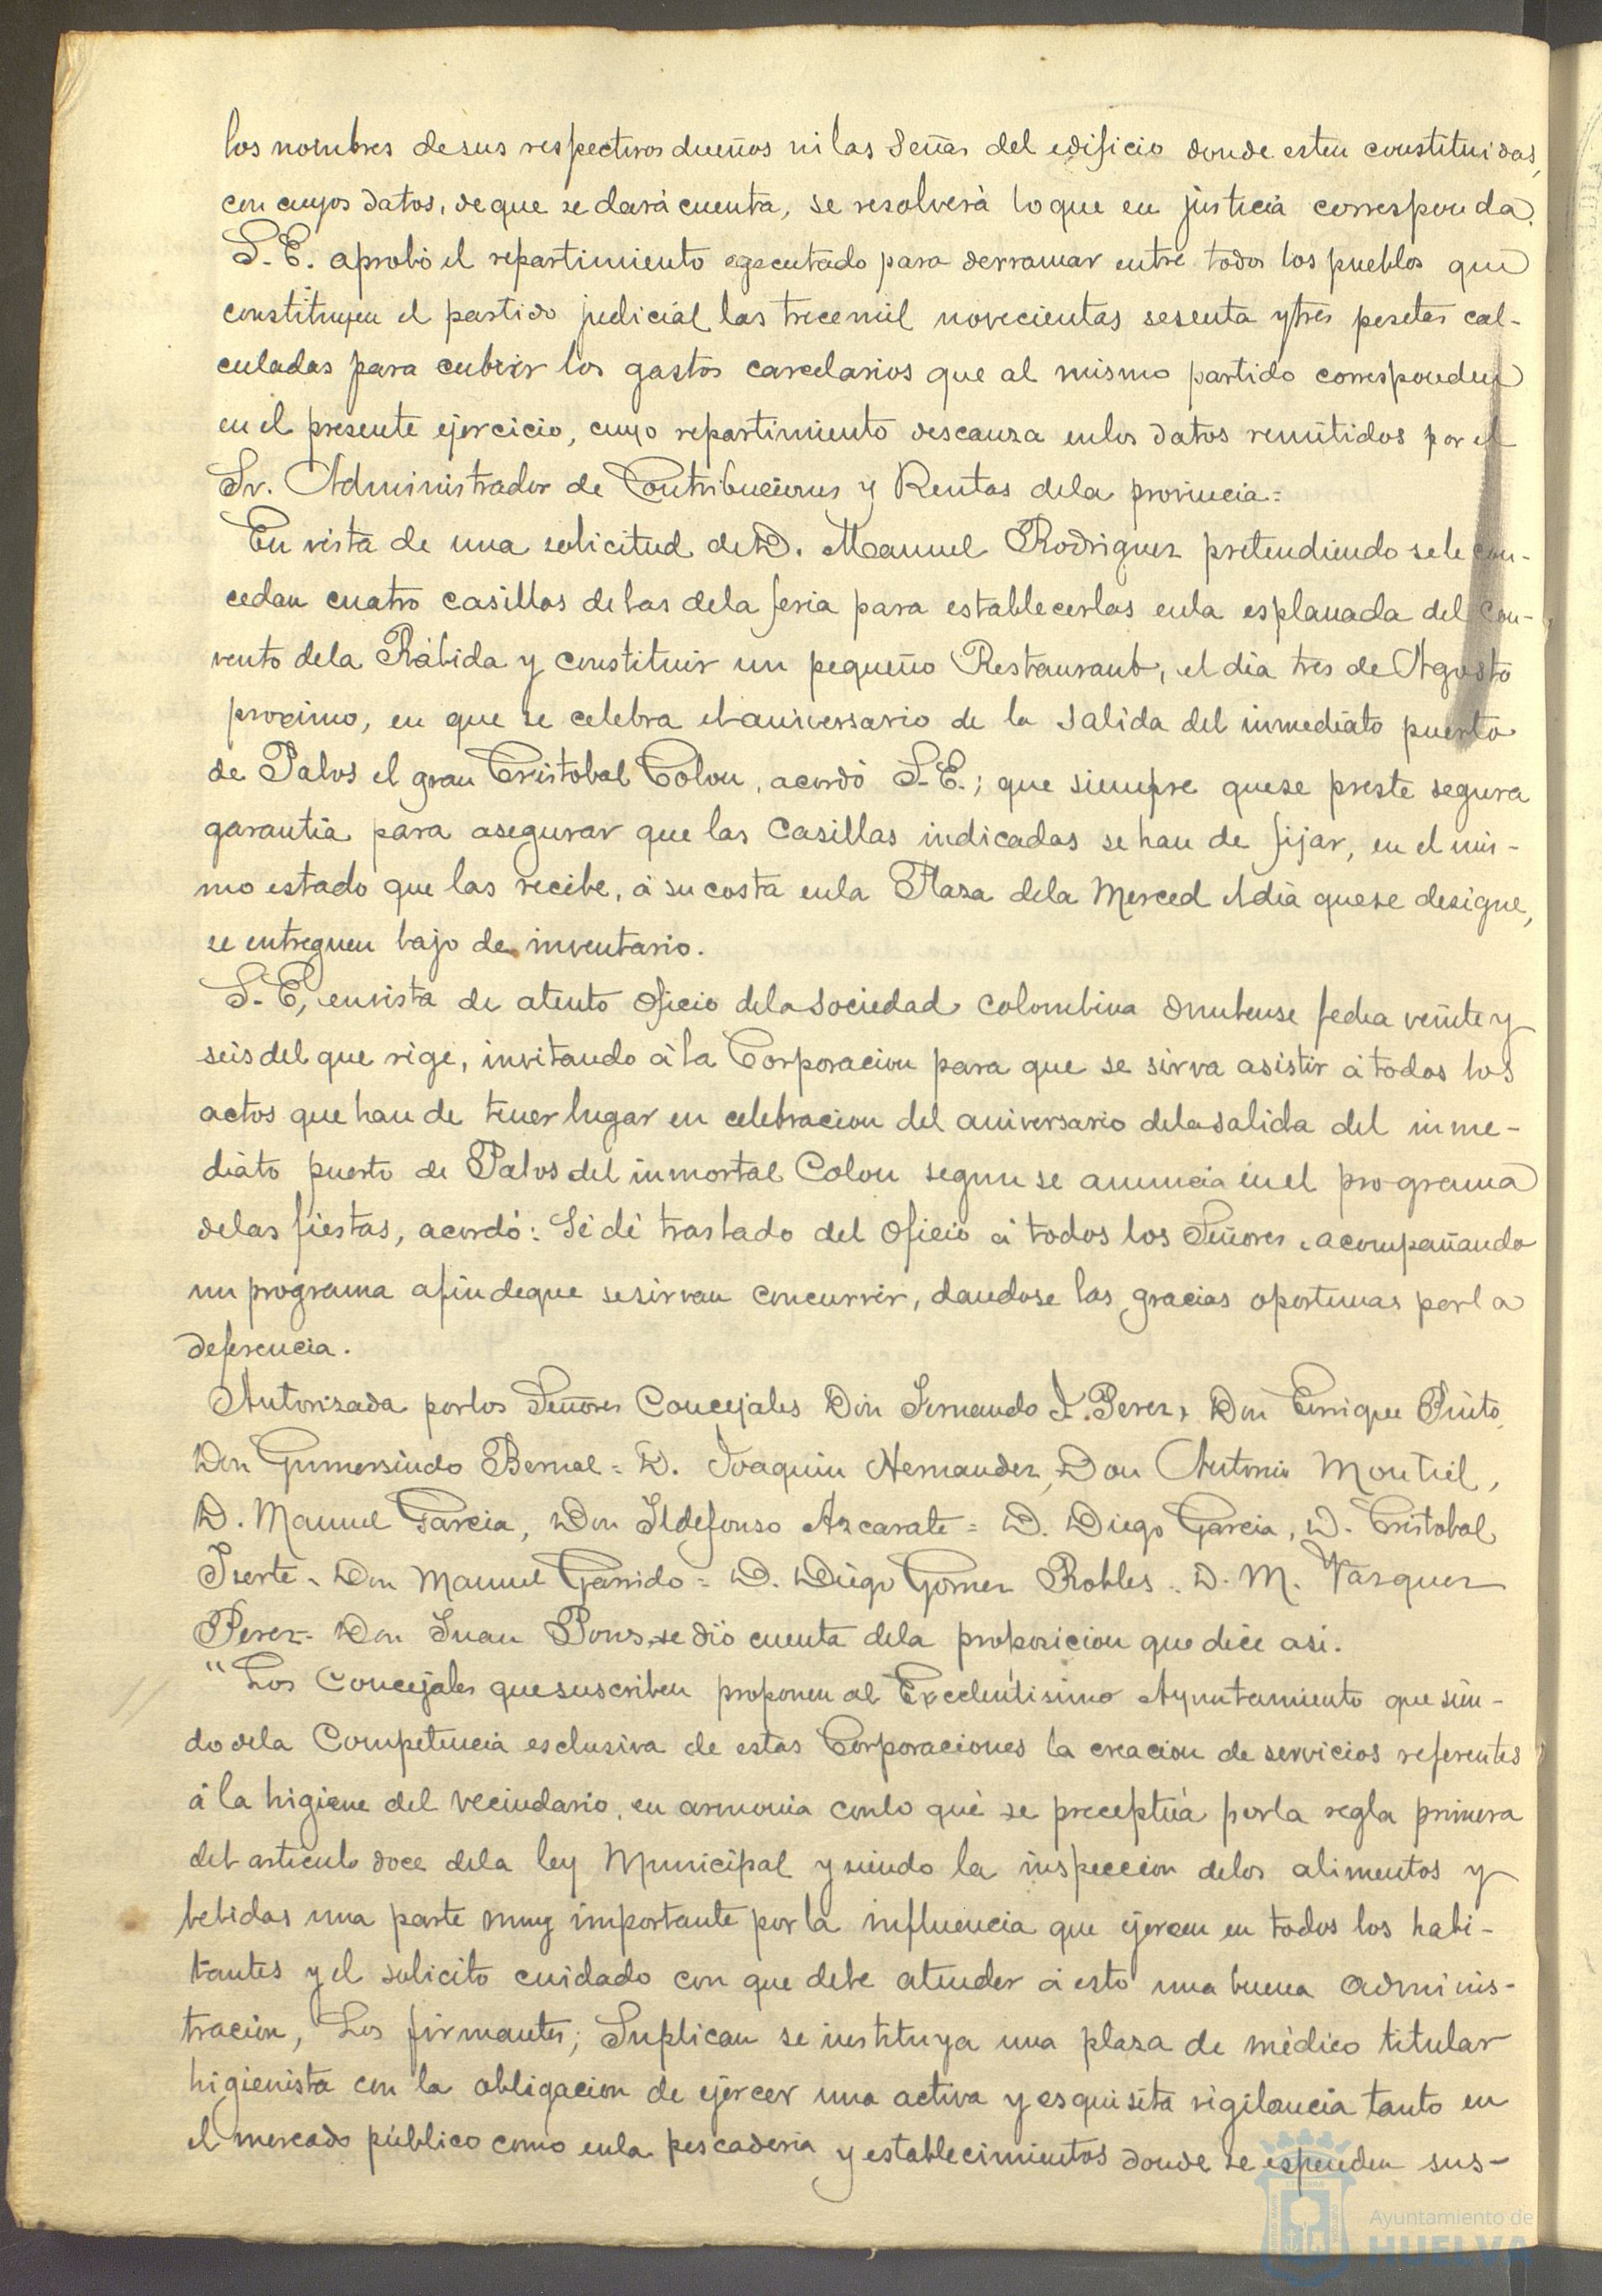 los nombres desus respectivos dueños ni las Señas del edificio donde esten constituidas,
con cuyos datos, deque se dará cuenta, se resolverá loque en justicia corresponda.
S.E. aprobó el repartimiento egecutado para derramar entre todos los pueblos que
constituyen el partido judicial las trecemil novecientas sesenta ytres pesetas cal-
culadas para cubrir los gastos carcelarios que al mismo partido corresponden
en el presente ejercicio, cuyo repartimiento descanza enlos datos remitidos por el
Sr. Administrador de Contribuciones y Rentas dela provincia=
En vista de una solicitud de D. Manuel Rodriguez pretendiendo sele con-
cedan cuatro casillas delas dela feria para establecerlas enla esplanada del Con-
vento dela Rábida y constituir un pequeño Restaurant, el dia tres de Agosto
procimo, en que se celebra el aniversario de la Salida del inmediato puerto
de Palos el gran Cristobal Colon, acordó S.E.; que siempre quese preste segura
garantia para asegurar que las Casillas indicadas se han de fijar, en el mis-
mo estado que las recibe, á su costa enla Plaza dela Merced el dia quese designe,
se entreguen bajo de inventario.
S.E, en vista de atento oficio dela Sociedad Colombina Onubense fecha veinte y
seis del que rige, invitando á la Corporacion para que se sirva asistir á todos los
actos que han de tener lugar en celebracion del aniversario dela salida del inme-
diato puerto de Palos del inmortal Colon segun se anuncia en el programa
delas fiestas, acordó: Se dé traslado del Oficio á todos los Señores, acompañando
un programa afin deque sesirvan concurrir, dandose las gracias oportunas por la
deferencia.
Autorizada porlos Señores Concejales Don Fernando I. Perez, Don Enrique Pinto,
Don Gumersindo Bernal = D. Joaquin Hernandez, Don Antonio Montiel,
D. Manuel Garcia, Don Ildefonso Azcarate = D. Diego Garcia, D. Cristobal
Iserte = Don Manuel Garrido = D. Diego Gomez Robles = D. M. Vazquez
Perez = Don Juan Pons, se dió cuenta dela proposicion que dice asi.
"Los Concejales que suscriben proponen al Excelentisimo Ayuntamiento que sien-
do dela Competencia esclusiva de estas Corporaciones la creacion de servicios referentes
á la higiene del vecindario, en armonia conlo que se preceptúa porla regla primera
del articulo doce dela ley Municipal y siendo la inspeccion delos alimentos y
bebidas una parte muy importante por la influencia que ejercen en todos los habi-
tantes y el solicito cuidado con que debe atender á esto una buena adminis-
tracion, Los firmantes; Suplican se instituya una plaza de médico titular
higienista con la obligacion de ejercer una activa y esquisita vigilancia tanto en
el mercado público como enla pescaderia y establecimientos donde se espenden sus-
Ayuntamiento de
HUELVA